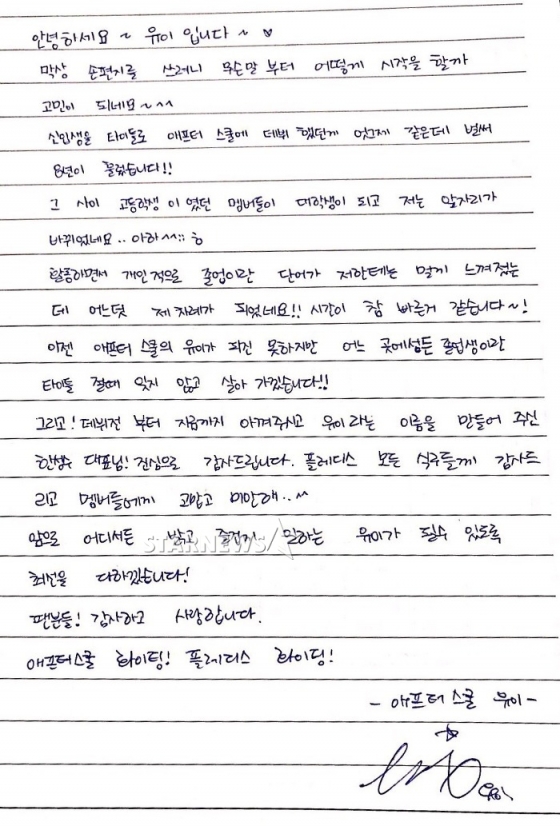 안녕하세요~ 유이 입니다~ ♥
막상 손편지를 쓰려니 무슨말 부터 어떻게 시작을 할까
고민이 되네요~^^
신입생을 타이틀로 애프터 스쿨에 데뷔 했던게 엊그제 같은데 벌써
8년이 흘렀습니다!!
그 사이 고등학생 이 였던 멤버들이 대학생이 되고 저는 앞자리가
바뀌었네요.. 아하^^;; ㅎ
활동하면서 개인적으로 졸업이란 단어가 저한테는 멀게 느껴졌는
데 어느덧 제 차례가 되었네요!! 시간이 참 빠른거 같습니다~!
이젠 애프터 스쿨의 유이가 되진 못하지만 어느 곳에성든 졸업생이란
타이틀 절때 잊지 않고 살아 가겠습니다!!
그리고! 데뷔전 부터 지금까지 아껴주시고 유이 라는 이름을 만들어 주신
한성수 대표님! 진심으로 감사드립니다. 플레디스 모든 식구들께 감사드
리고 멤버들에게 고맙고 미안해..^^
앞으로 어디서든 밝고 즐겁게 일하는 유이가 될수 있도록
STARNEWS
최선을 다하겠습니다!
팬분들! 감사하고 사랑합니다.
애프터스쿨 화이팅! 플레디스 화이팅!
- 애프터 스쿨 유이 -